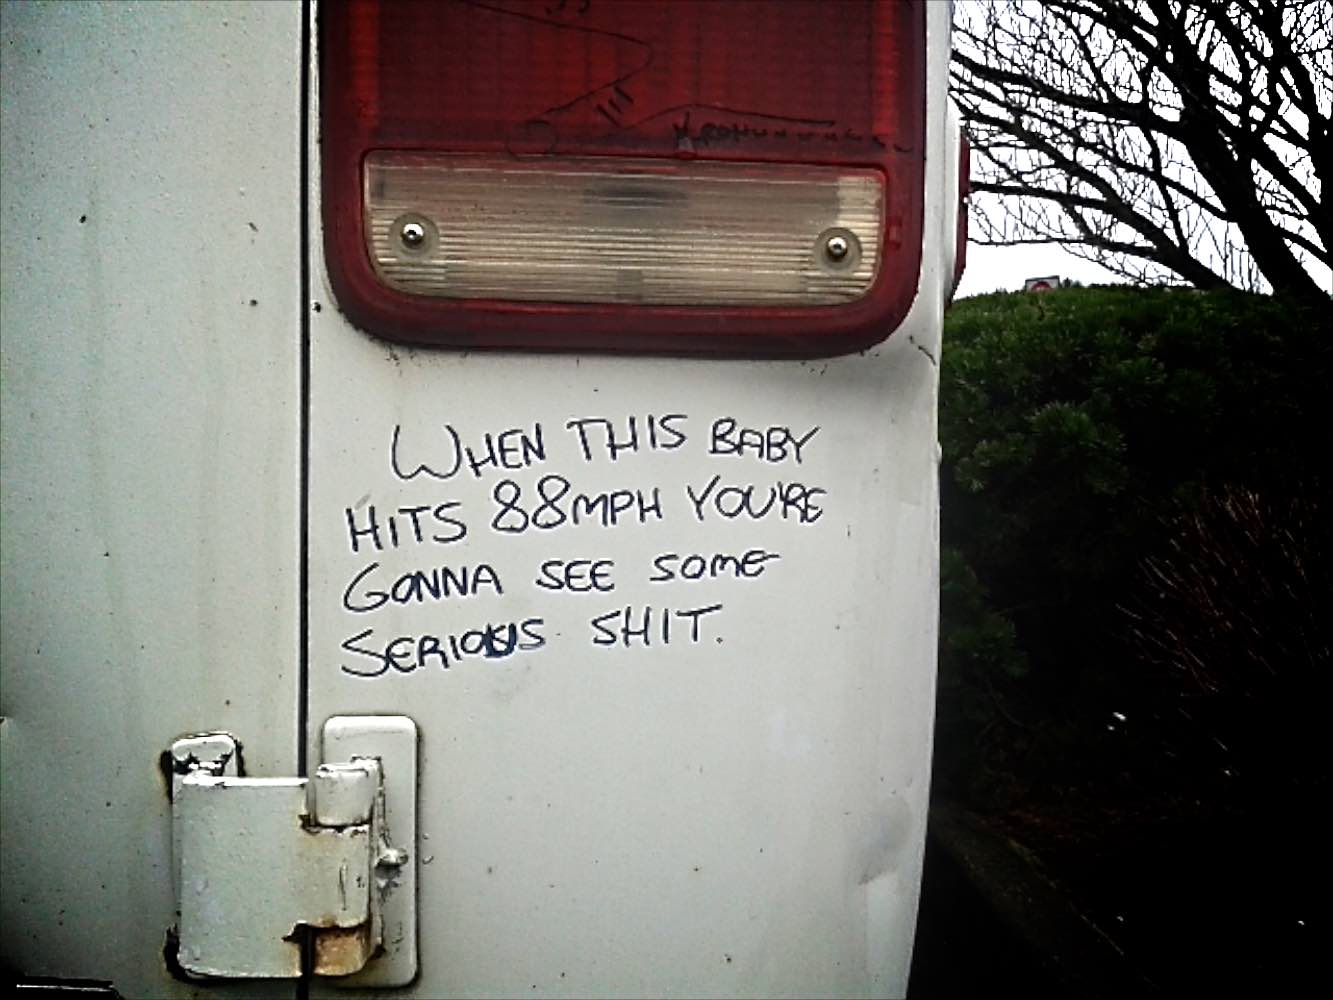 WHEN THIS BABY
HITS 88MPH YOU'RE
GONNA SEE SOME
SERIOUS SHIT.